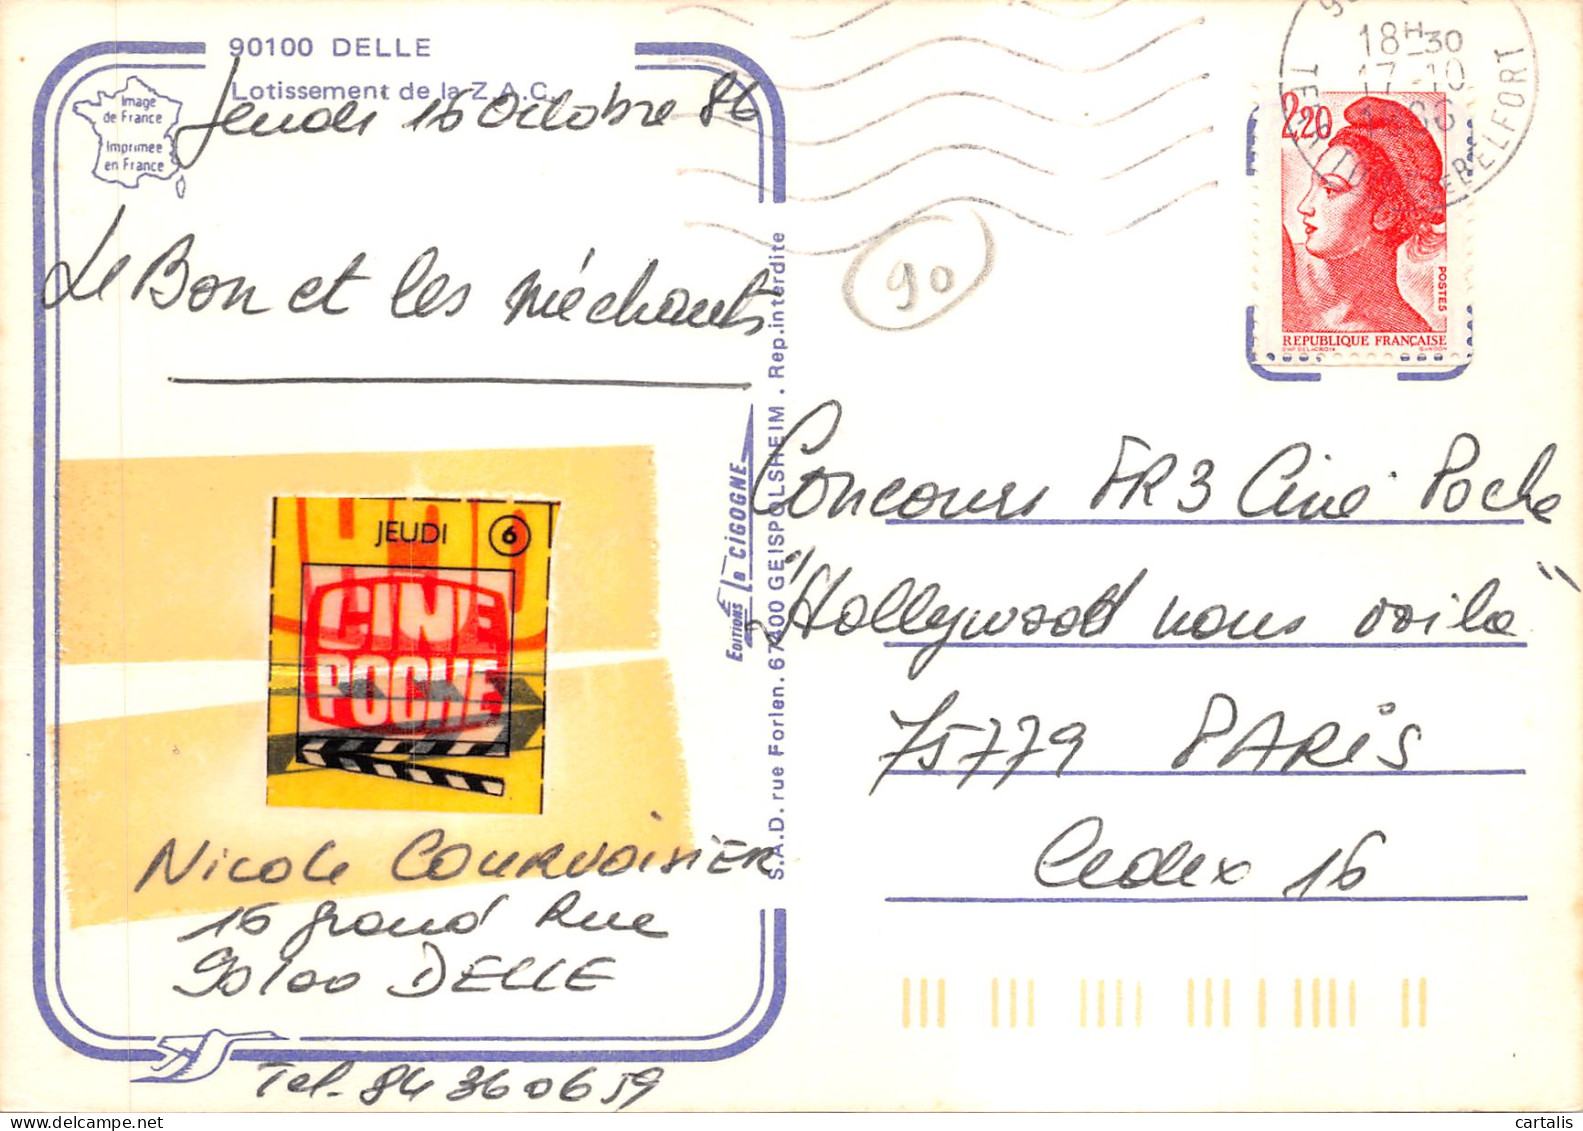 90100 DELLE
Lotissement de la Z.A.C.
Image
de France
Imprimée
en France
Jeudi 16 Octobre 86
Le Bon et les méchants
JEUDI 6
CINE
POCHE
Nicole COURVOISIER
16 grand Rue
90100 DELLE
Tel. 84 36 06 59
Editions la CIGOGNE
S.A.D. rue Forlen. 67400 GEISPOLSHEIM . Rep.interdite
90
18H30
17-10
TERRITOIRE DE BELFORT
2,20
POSTES
REPUBLIQUE FRANÇAISE
Concours FR3 Ciné Poche
"Hollywood nous voila"
75779 PARIS
Cedex 16
delcampe.net
cartalis